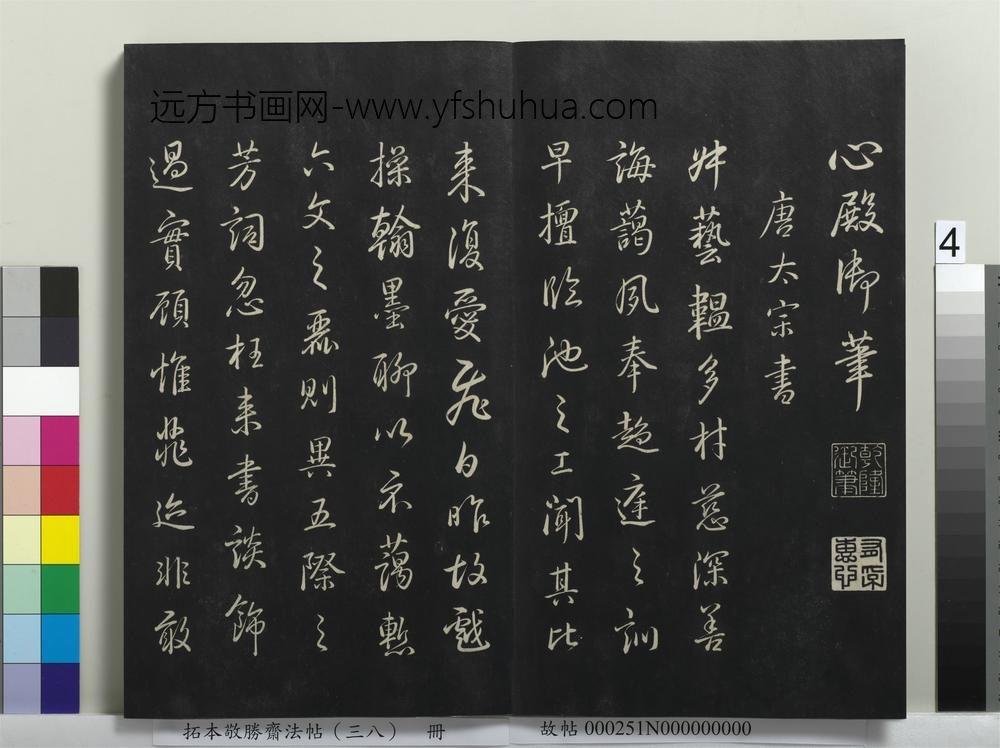 远方书画网-www.yfshuhua.com
心殿御筆
乾隆御筆
唐太宗書
藝韞多材慈深善
誨藹夙奉趨庭之訓
早擅臨池之工聞其比
来復愛飛白昨故戲
操翰墨聊以示藹慙
六文之麗則異五際之
芳詞忽枉来書談飾
過實顧惟菲迹非敢
4
拓本敬勝齋法帖（三八） 冊
故帖 000251N000000000